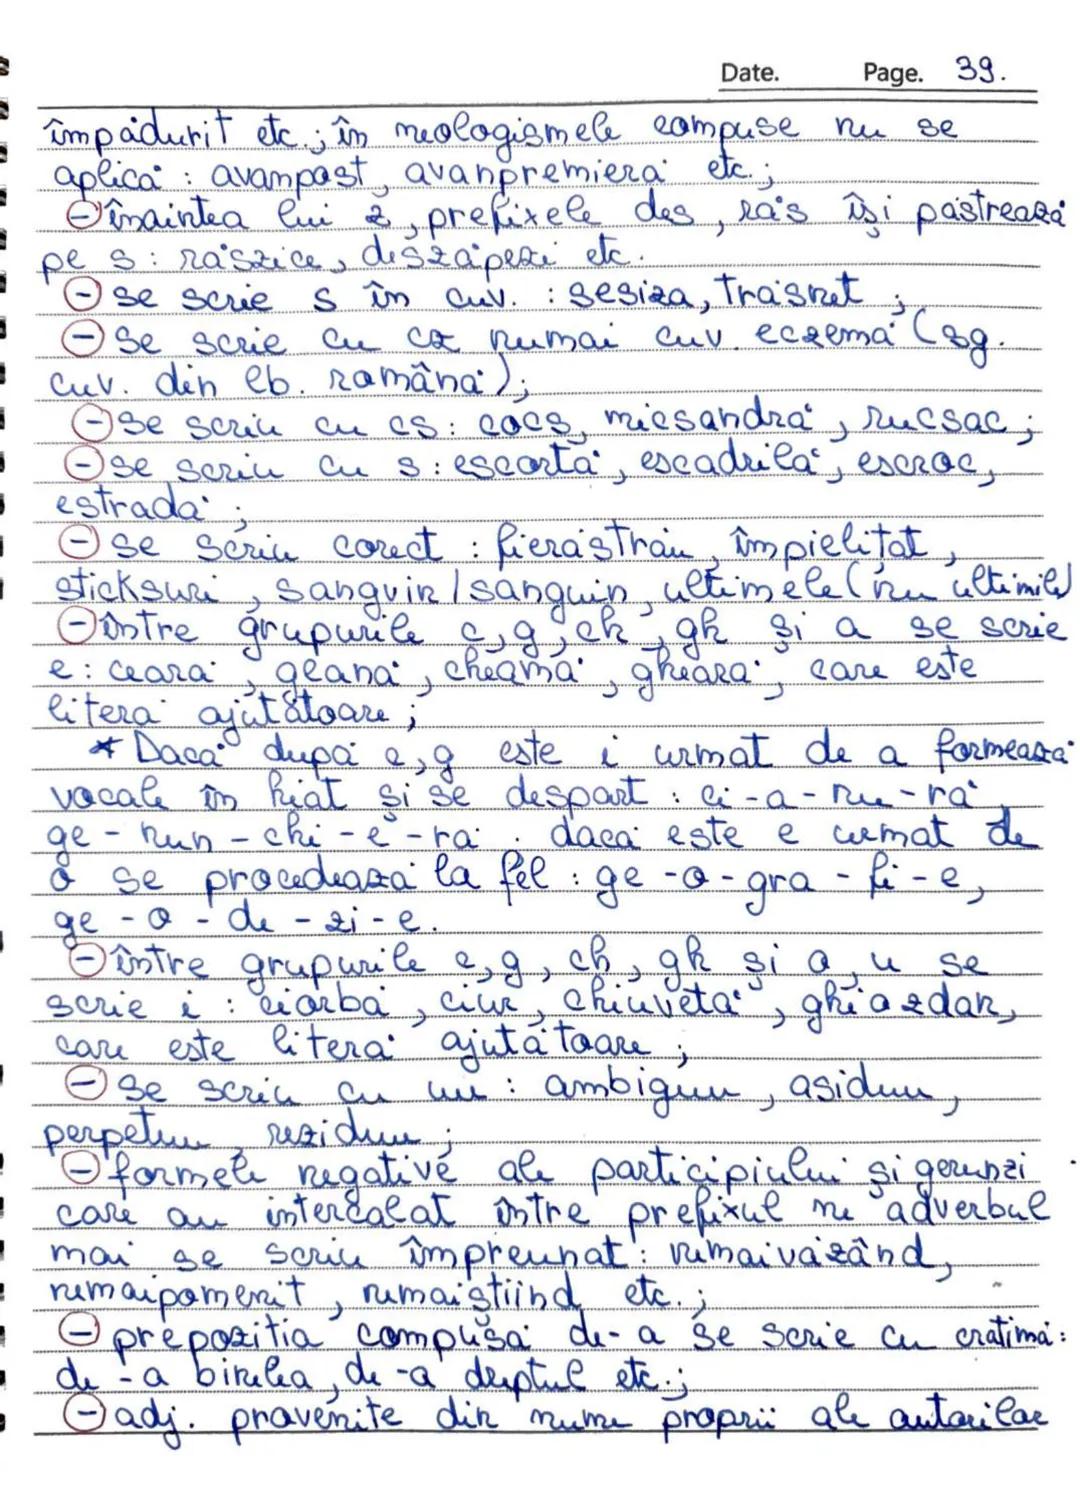 Date. Page. 39.
împădurit etc.; în neologismele compuse nu se
aplică : avampost, avanpremieră etc.;
- înaintea lui z, prefixele des, răs își păstrează
pe s : răszice, deszăpezi etc.
- se scrie s în cuv. : sesiza, trăsnet ;
- se scrie cu cz numai cuv. eczemă (sg.
cuv. din lb. română);
- se scriu cu cs: cocs, micsandră, rucsac ;
- se scriu cu s : escortă, escadrilă, escroc,
estradă ;
- se scriu corect : fierăstrău, împielițat,
sticksuri, sanguin/sanguin, ultimele (nu ultimile)
- între grupurile c, g, ch, gh și a se scrie
e : ceară, geană, cheamă, gheară, care este
literă ajutătoare ;
* Dacă după c, g este i urmat de a formează
vocale în hiat și se despart : ci-a-nu-ră
ge-nun-chi-e-ră. dacă este e urmat de
o se procedează la fel : ge-o-gra-fi-e,
ge-o-de-zi-e.
- între grupurile c, g, ch, gh și o, u se
scrie i : ciorbă, ciur, chiuvetă, ghiozdan,
care este literă ajutătoare ;
- se scriu cu uu : ambiguu, asiduu,
perpetuu, reziduu ;
- formele negative ale participiului și gerunzi
care au intercalat între prefixul ne adverbul
mai se scriu împreunat : nemaivăzând,
nemaipomenit, nemaiștiind etc. ;
- prepoziția compusă de-a se scrie cu cratimă :
de-a binelea, de-a dreptul etc.;
- adj. provenite din nume proprii ale autorilor